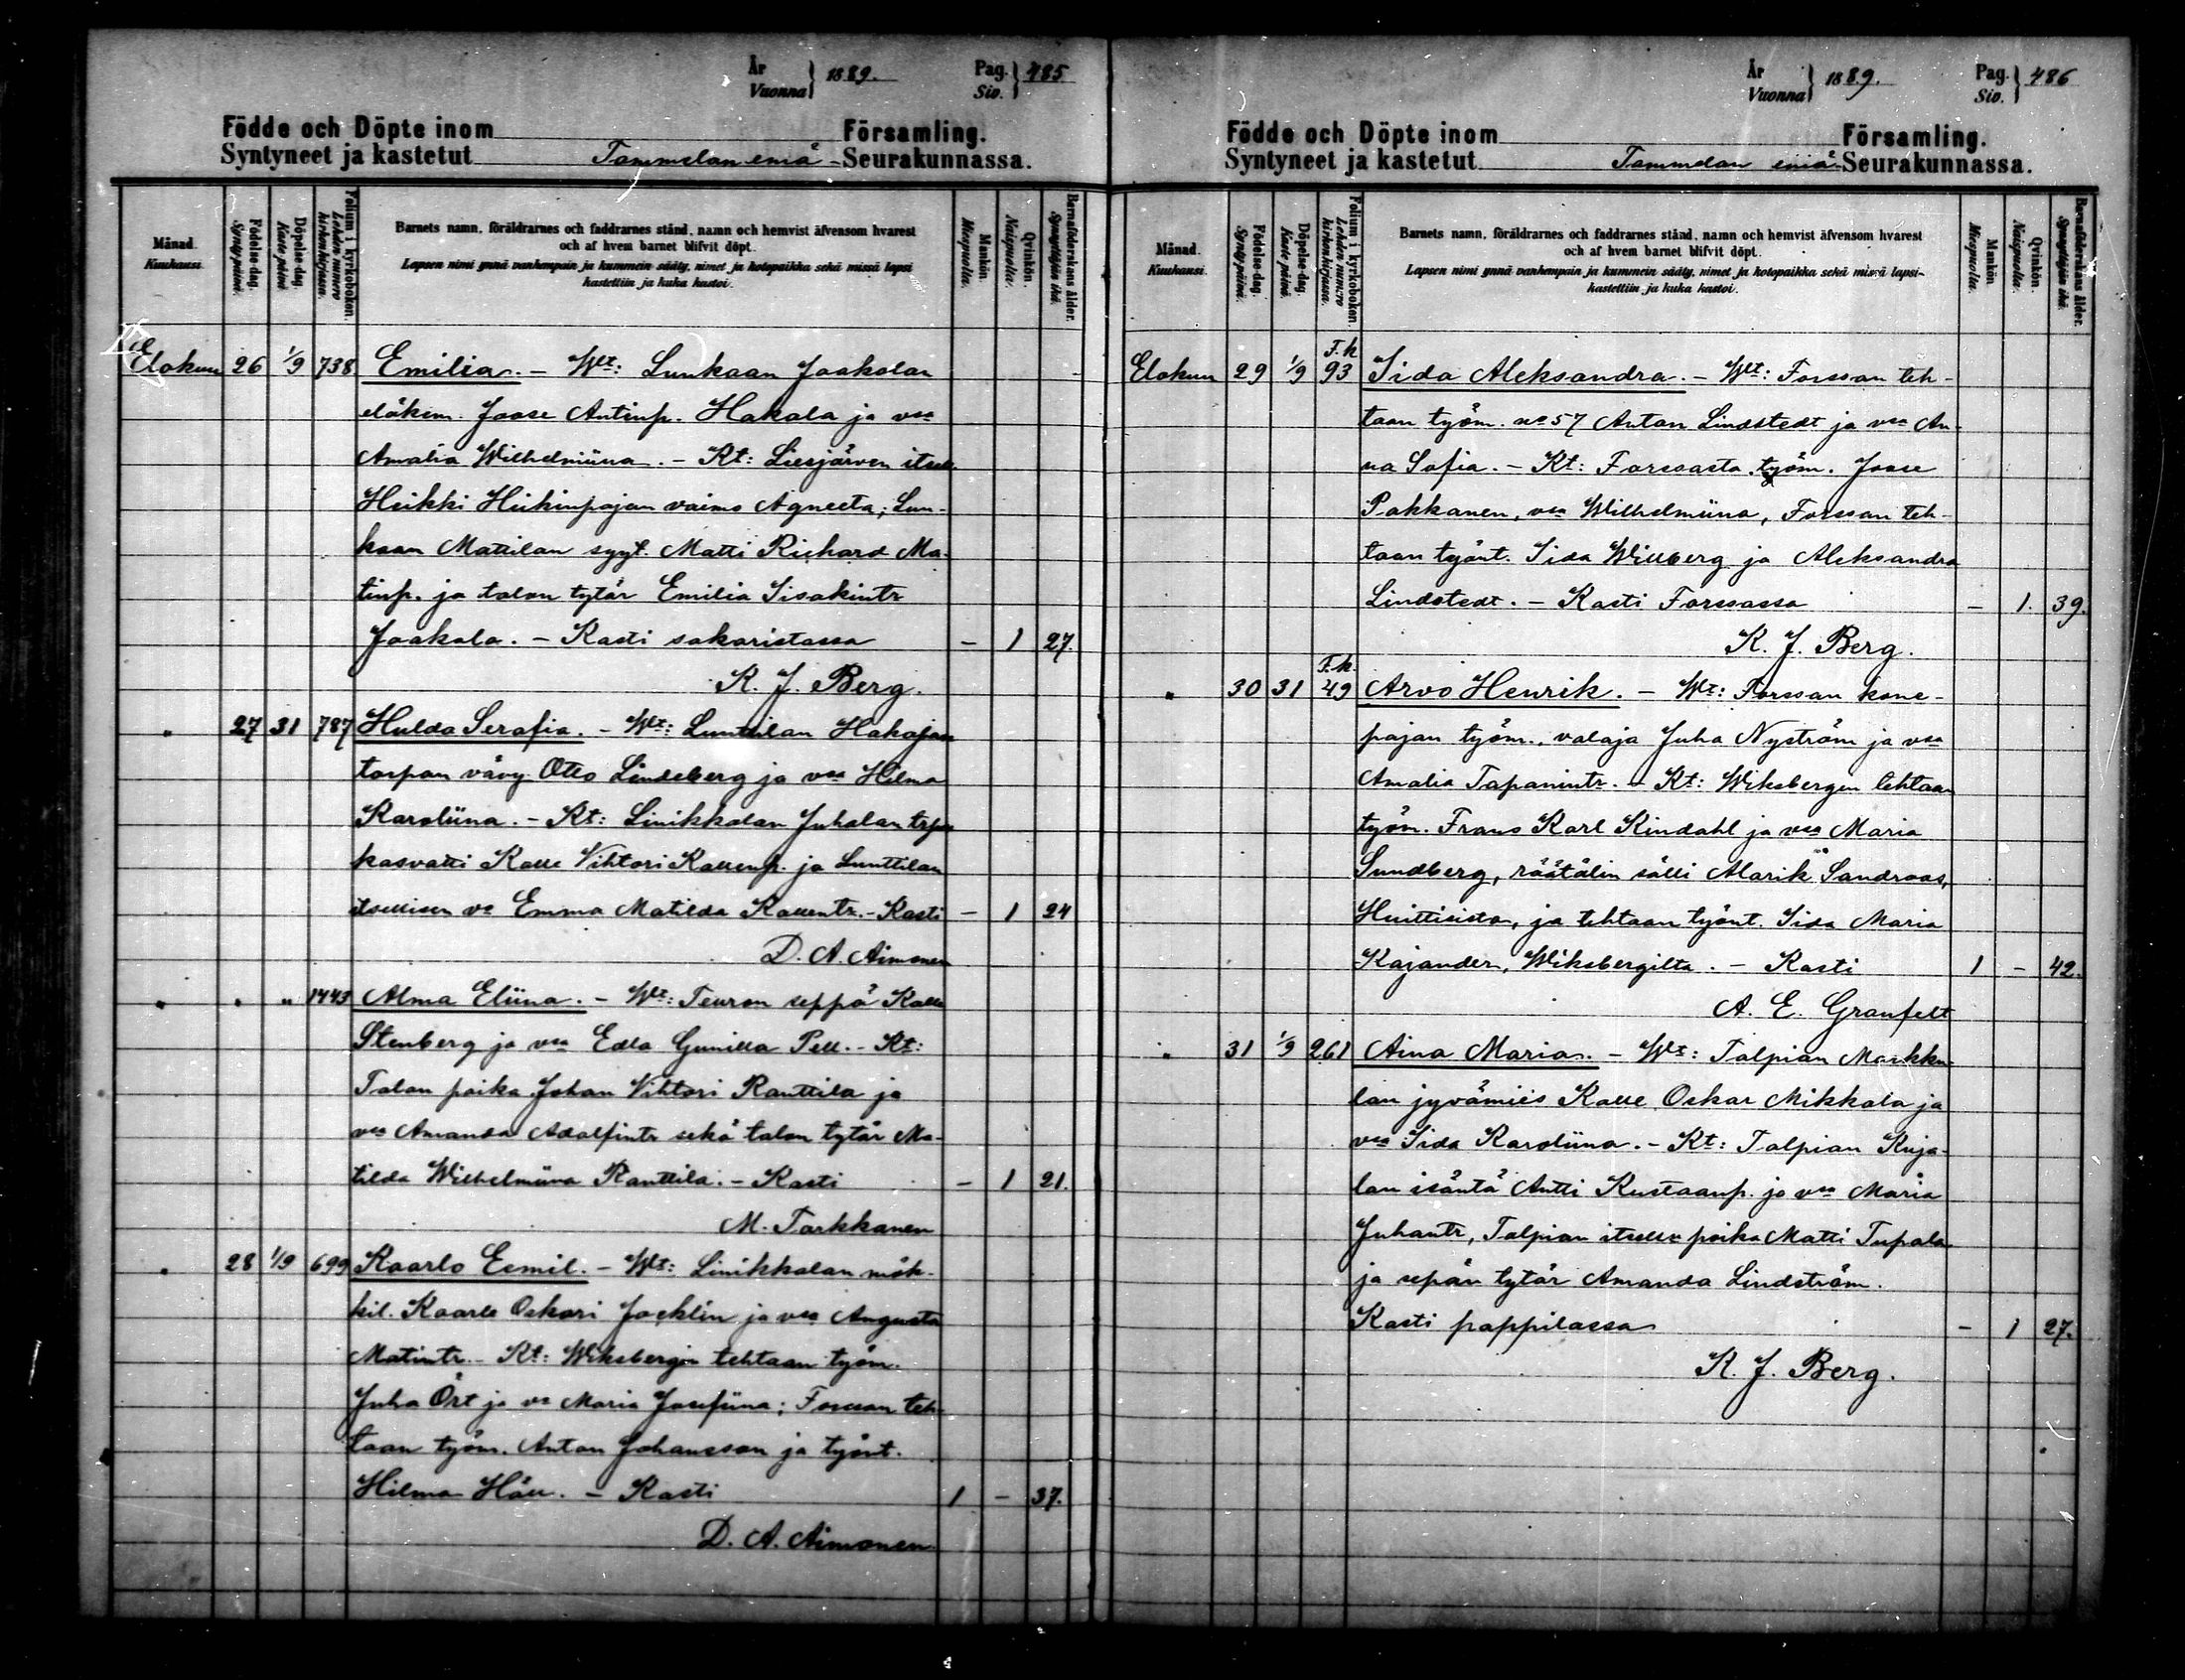 År
Vuonna } 1889.
Pag.
Siv. } 485
Födde och Döpte inom Församling.
Syntyneet ja kastetut Tammelan emä- Seurakunnassa.
Månad. Kuukausi.
Födelse-dag. Syntypäivä.
Döpelse-dag. Kastepäivä
Folium i kyrkoboken. Lehden numero kirkonkirjassa.
Barnets namn, föräldrarnes och faddrarnes stånd, namn och hemvist äfvensom hvarest
och af hvem barnet blifvit döpt.
Lapsen nimi ynnä vanhempain ja kummein sääty, nimet ja kotopaikka sekä missä lapsi
kastettiin ja kuka kastoi.
Mankön. Miespuolia.
Qvinkön. Naispuolia.
Barnaföderskans ålder. Synnyttäjän ikä.
Elokuu 26 1/9 738 Emilia. - Wt: Lunkaan Jaakolan
eläkem. Joose Antinp. Hakala ja vsa
Amalia Wilhelmiina. - Kt: Liesjärven itsell.
Heikki Hiikinpojan vaimo Agneeta; Lun-
kaan Mattilan syyt. Matti Richard Ma-
tinp. ja talon tytär Emilia Iisakintr
Jaakola. - Kasti sakaristassa - 1 27.
K. J. Berg.
" 27 31 787 Hulda Serafia. - Wt: Lunttilan Hakojan
torpan vävy Otto Lindeberg ja vsa Hilma
Karoliina. - Kt: Linikkalan Juhalan trpn
kasvatti Kalle Vihtori Kallenp. ja Lunttilan
itsellisen vo Emma Matilda Kallentr. - Kasti - 1 24
D. A. Aimonen
" " " 1443 Alma Eliina. - Wt: Teuron seppä Kalle
Stenberg ja vsa Edla Gunilla Pell. - Kt:
Talon poika Johan Vihtori Ranttila ja
vsa Amanda Adolfintr sekä talon tytär Ma-
tilda Wilhelmiina Ranttila. - Kasti - 1 21.
M. Tarkkanen
" 28 1/9 699 Kaarlo Eemil. - Wt: Linikkalan mök-
kil. Kaarle Oskari Jocklin ja vsa Augusta
Matintr. - Kt: Wiksbergin tehtaan työm.
Juha Ört ja vo Maria Josefiina; Forssan teh-
taan työm. Anton Johansson ja työnt.
Hilma Häll. - Kasti 1 - 37.
D. A. Aimonen
År
Vuonna } 1889.
Pag.
Siv. } 486
Födde och Döpte inom Församling.
Syntyneet ja kastetut Tammelan emä- Seurakunnassa.
Månad. Kuukausi.
Födelse-dag. Syntypäivä.
Döpelse-dag. Kastepäivä.
Folium i kyrkoboken. Lehden numero kirkonkirjassa.
Barnets namn, föräldrarnes och faddrarnes stånd, namn och hemvist äfvensom hvarest
och af hvem barnet blifvit döpt.
Lapsen nimi ynnä vanhempain ja kummein sääty, nimet ja kotopaikka sekä missä lapsi-
kastettiin ja kuka kastoi.
Mankön. Miespuolia.
Qvinkön. Naispuolia.
Barnaföderskans ålder. Synnyttäjän ikä.
Elokuu 29 1/9 F.k. 93 Iida Aleksandra. - Wt: Forssan teh-
taan työm. no 57 Anton Lindstedt ja vsa An-
na Sofia. - Kt: Forssasta työm. Joose
Pakkanen, vsa Wilhelmiina, Forssan teh-
taan työnt. Iida Willberg ja Aleksandra
Lindstedt. - Kasti Forssassa - 1. 39.
K. J. Berg.
" 30 31 F.k. 49 Arvo Henrik. - Wt: Forssan kone-
pajan työm., valaja Juha Nyström ja vsa
Amalia Tapanintr. - Kt: Wiksbergin tehtaan
työm. Frans Karl Kindahl ja vsa Maria
Sundberg, räätälin sälli Alarik Sandroos,
Huittisista, ja tehtaan työnt. Iida Maria
Kajander, Wiksbergilta. - Kasti 1 - 42.
A. E. Granfelt
" 31 1/9 261 Aina Maria. - Wt: Talpian Markku-
lan jyvämies Kalle Oskar Mikkola ja
vsa Iida Karoliina. - Kt: Talpian Kuja-
lan isäntä Antti Kustaanp. ja vsa Maria
Juhantr, Talpian itsell. poika Matti Tupala
ja sepän tytär Amanda Lindström.
Kasti pappilassa - 1 27.
K. J. Berg.